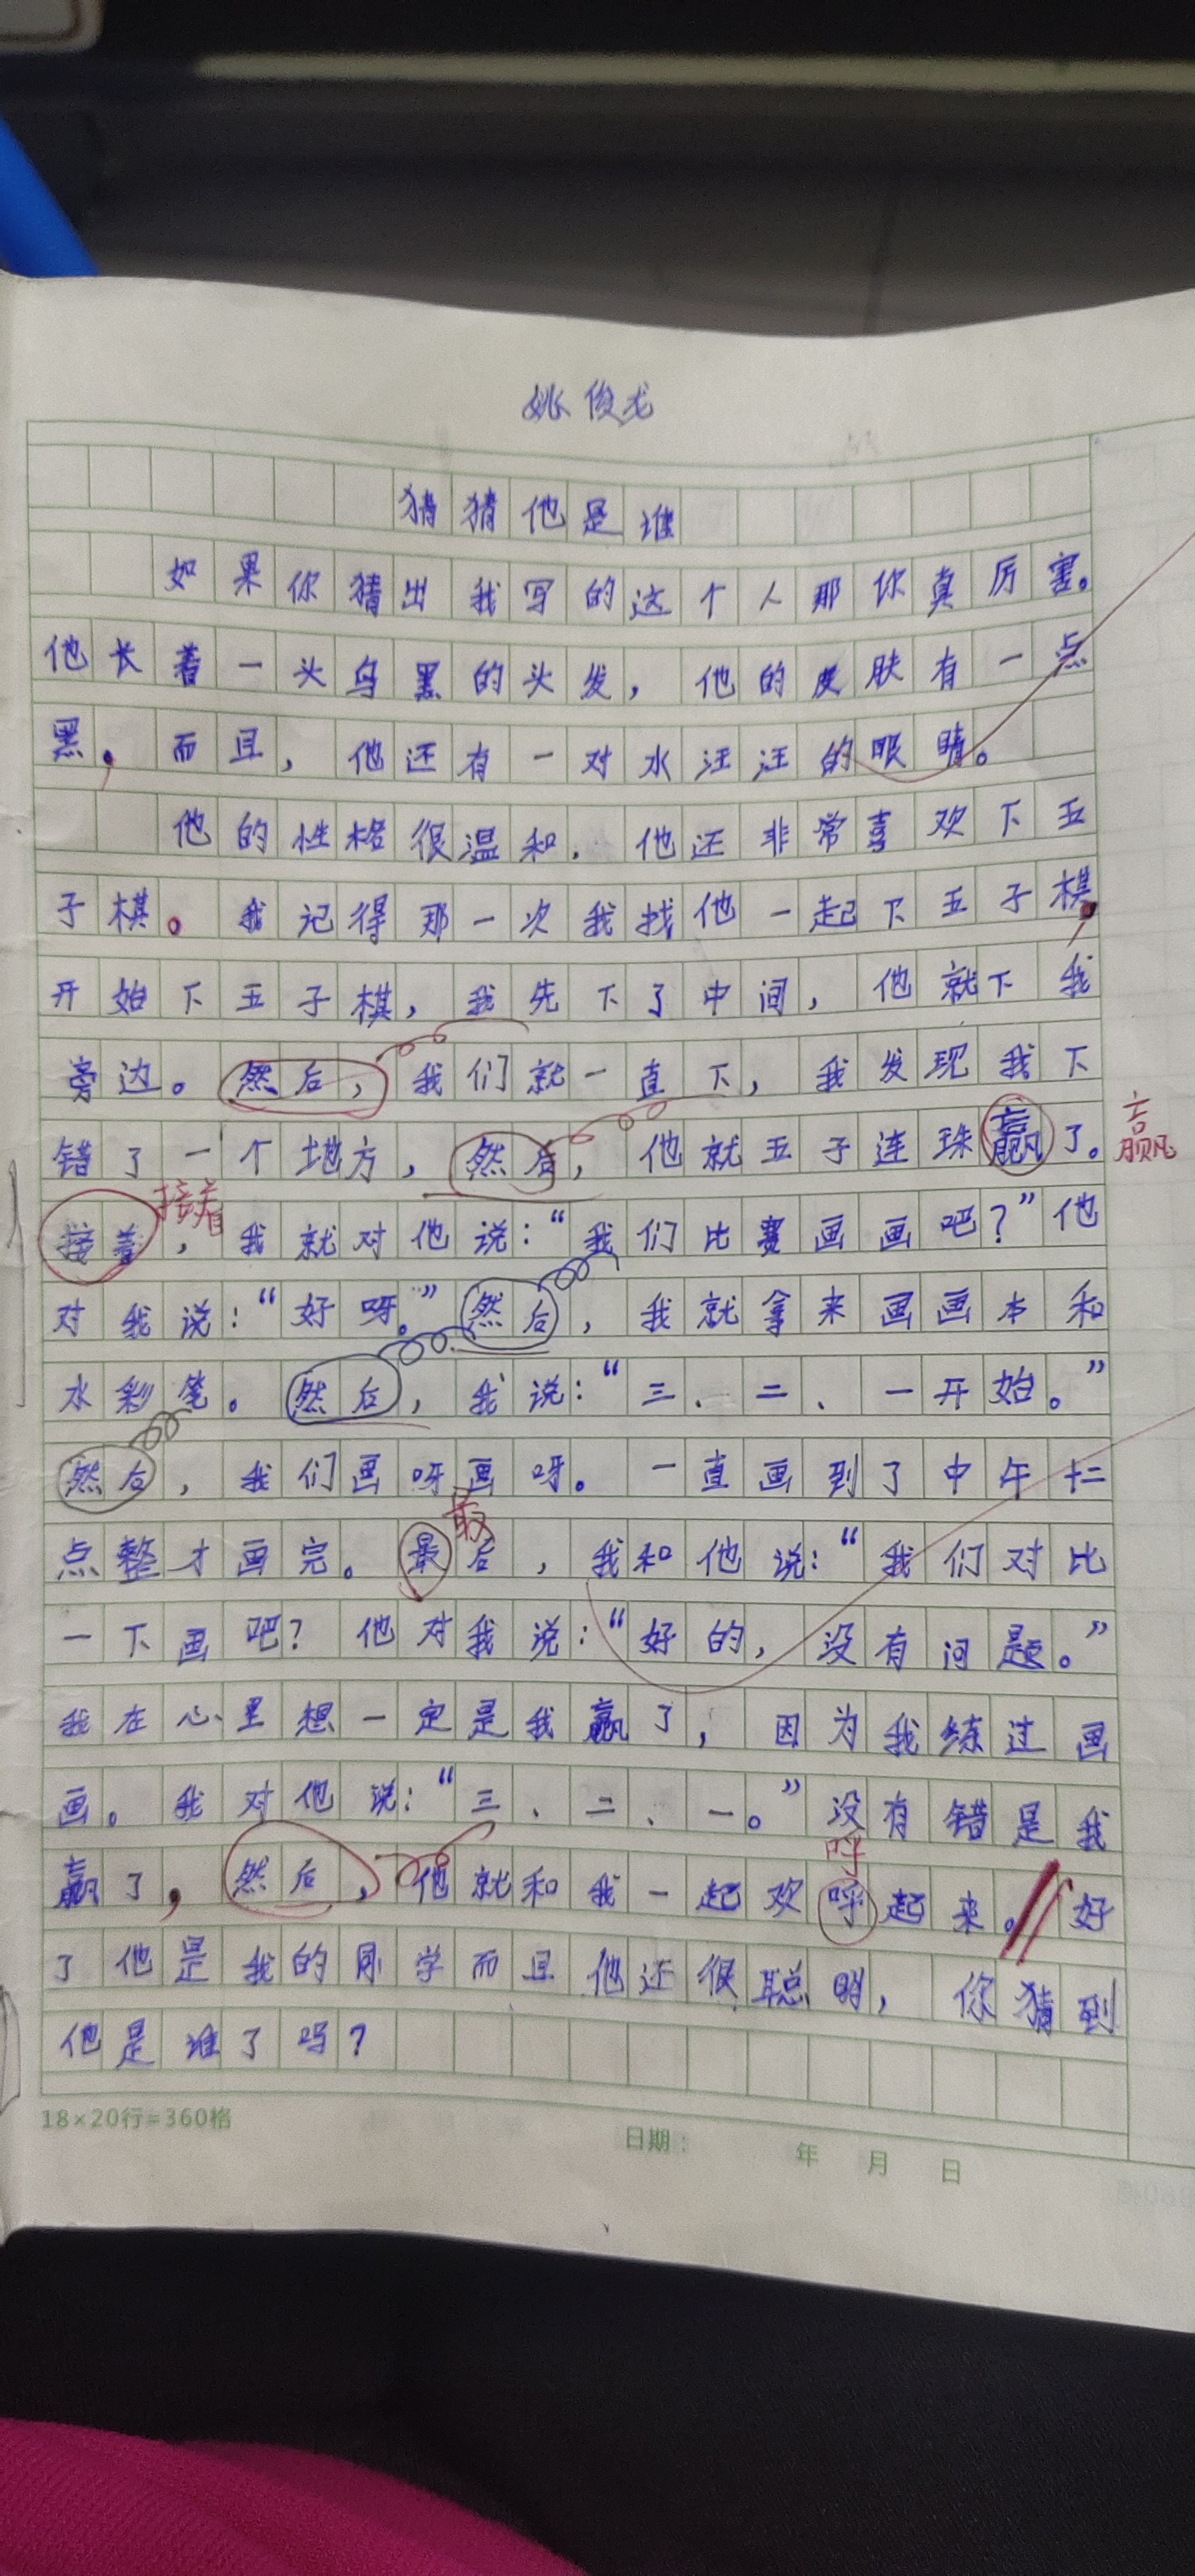 姚俊龙
猜猜他是谁
如果你猜出我写的这个人那你真厉害。
他长着一头乌黑的头发，他的皮肤有一点
黑，而且，他还有一对水汪汪的眼睛。
他的性格很温和，他还非常喜欢下五
子棋。我记得那一次我找他一起下五子棋，
开始下五子棋，我先下了中间，他就下我
旁边。然后，我们就一直下，我发现我下
错了一个地方，然后，他就五子连珠赢了。赢
接着，接着我就对他说：“我们比赛画画吧？”他
对我说：“好呀。”然后，我就拿来画画本和
水彩笔。然后，我说：“三、二、一开始。”
然后，我们画呀画呀。一直画到了中午十二
最
点整才画完。最后，我和他说：“我们对比
一下画吧？他对我说：“好的，没有问题。”
我在心里想一定是我赢了，因为我练过画
画。我对他说：“三、二、一。”没有错是我
呼
赢了，然后，他就和我一起欢呼起来。好
了他是我的同学而且他还很聪明，你猜到
他是谁了吗？
18×20行=360格
日期： 年 月 日